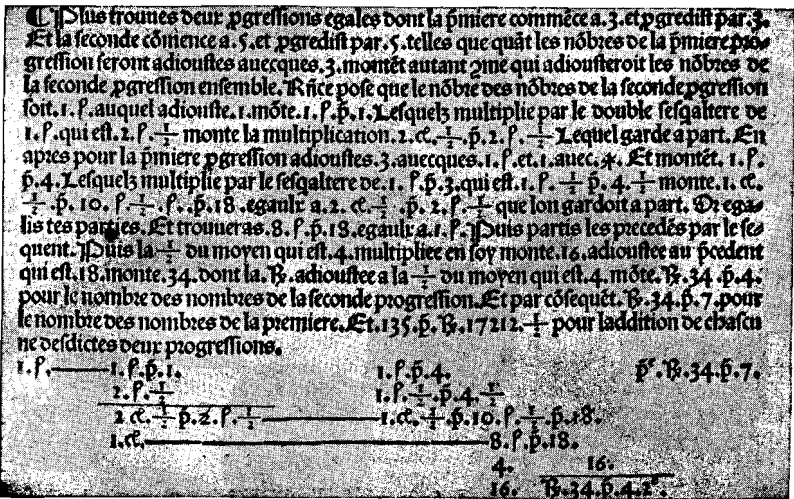 ¶ Plus trouues deux p̱gressions egales dont la p̄miere commẽce a .3. et p̱gredist par .3.
Et la seconde cõmence a .5. et p̱gredist par .5. telles que quãt les nõbres de la p̄miere pro⸗
gression seront adioustes auecques .3. montẽt autant ꝯme qui adiousteroit les nõbres de
la seconde p̱gression ensemble. Rñce pose que le nõbre des nõbres de la seconde p̱gression
soit .1.ρ. auquel adiouste .1. mõte .1.ρ.p̄.1. Lesquelz multiplie par le double sesqaltere de
1.ρ. qui est .2.ρ.½ monte la multiplication .2.ct.½.p̄.2.ρ.½ Lequel garde a part. En
apres pour la p̄miere p̱gression adioustes .3. auecques .1.ρ. et .1. auec.⁎. Et montẽt .1.ρ.
p̄.4. Lesquelz multiplie par le sesqaltere de .1.ρ.p̄.3. qui est .1.ρ.½ p̄.4.½ monte .1.ct.
½.p̄.10.ρ.½.ρ..p̄.18. egaulx a .2.ct.½.p̄.2.ρ.½ que lon gardoit a part. Or ega⸗
lis tes parties. Et trouueras .8.ρ.p̄.18. egaulx a .1.ρ. Puis partis les precedẽs par le se⸗
quent. Puis la ½ du moyen qui est .4. multipliee en soy monte .16. adioustee au p̄cedent
qui est .18. monte .34. dont la .℞. adioustee a la ½ du moyen qui est .4. mõte .℞.34.p̄.4.
pour le nombre des nombres de la seconde progression. Et par cõsequẽt .℞.34.p̄.7. pour
le nombre des nombres de la premiere. Et .135.p̄.℞.17212.½ pour laddition de chascu
ne desdictes deux progressions.
1.ρ.——1.ρ.p̄.1. 1.ρ.p̄.4. p̄ᵉ.℞.34.p̄.7.
2.ρ.½ 1.ρ.½.p̄.4.½
2 ct.½ p̄.2.ρ.½——1.ct.½.p̄.10.ρ.½.p̄.18.
1.ct.——8.ρ.p̄.18.
4. 16.
16. ℞.34.p̄.4.2ᵉ.